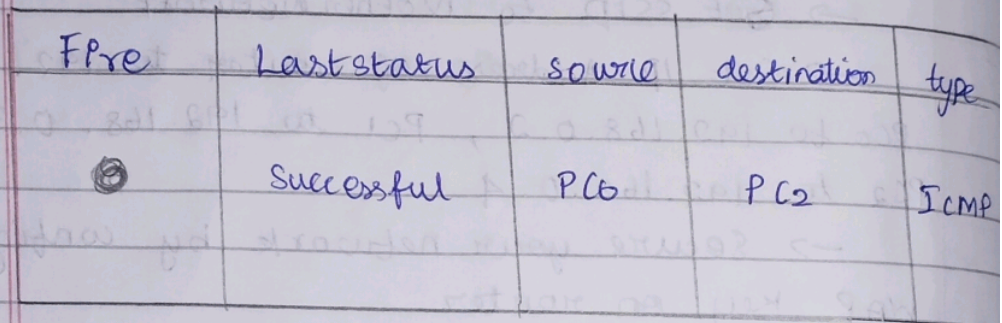 Fire Last status source destination type
Successful PC0 PC2 ICMP